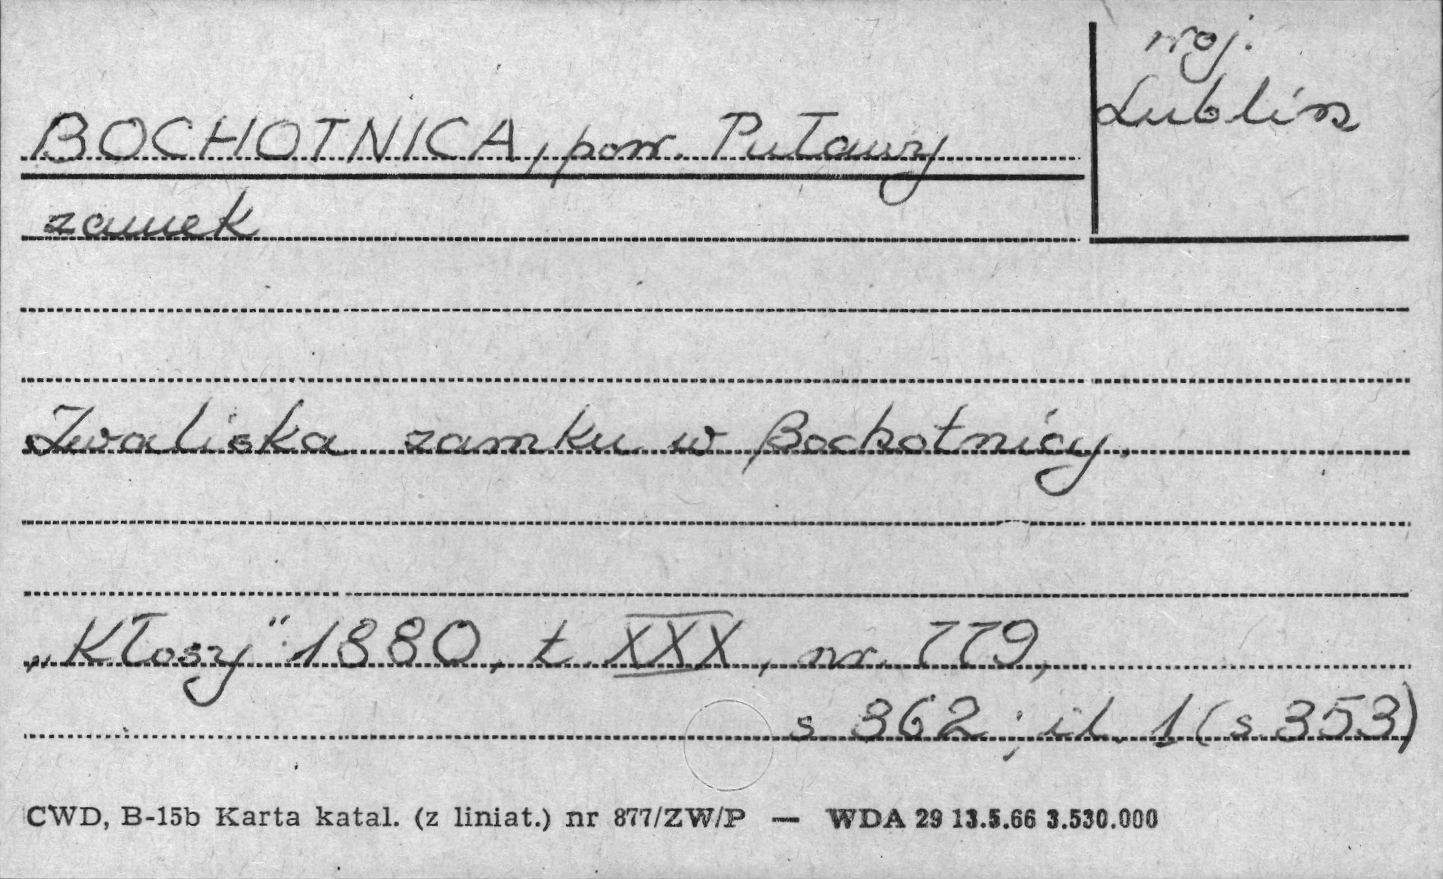 woj.
Lublin
BOCHOTNICA, pow. Puławy
zamek
Zwaliska zamku w Bochotnicy.
„Kłosy" 1880, t. XXX, nr. 779,
s. 362; il. 1 (s. 353)
CWD, B-15b Karta katal. (z liniat.) nr 877/ZW/P — WDA 29 13.5.66 3.530.000